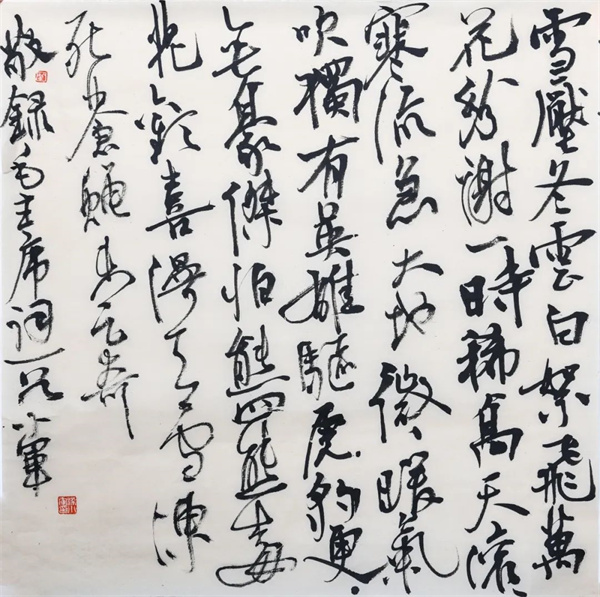 雪壓冬雲白絮飛萬
花紛謝一時稀高天滾々
寒流急大地微々暖氣
吹獨有英雄驅虎豹更
無豪傑怕熊羆梅
花歡喜漫天雪凍
死蒼蠅未足奇
敬錄毛主席詞 小軍